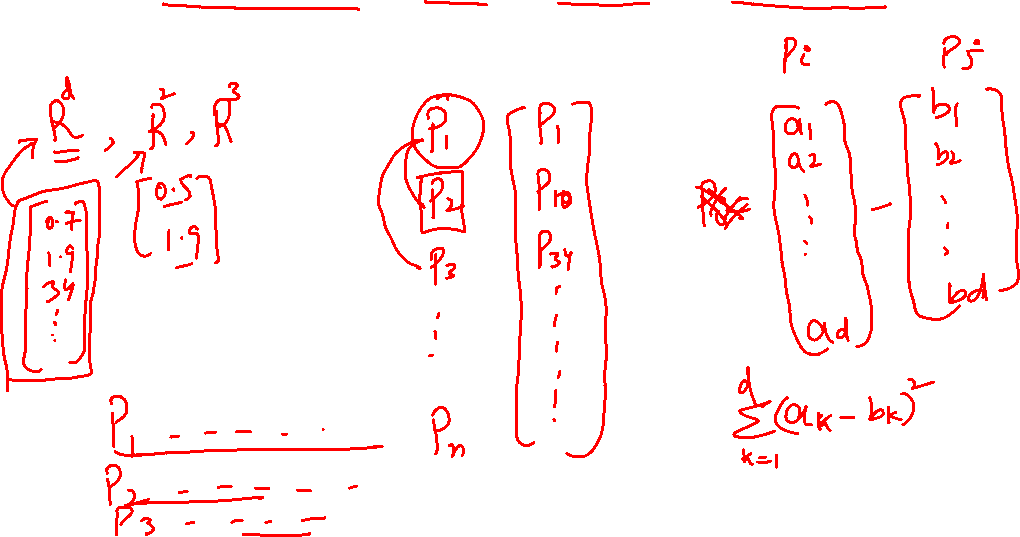 R^d, R^2, R^3
[0.7
1.9
34
⋮]
[0.5
1.9]
P1
P2
P3
⋮
Pn
[P1
P10
P34
⋮]
Pi Pj
[a1
a2
⋮
ad]
-
[b1
b2
⋮
bd]
∑_{k=1}^{d} (ak - bk)^2
P1 - - - - .
P2 - - - - -
P3 - - - - -